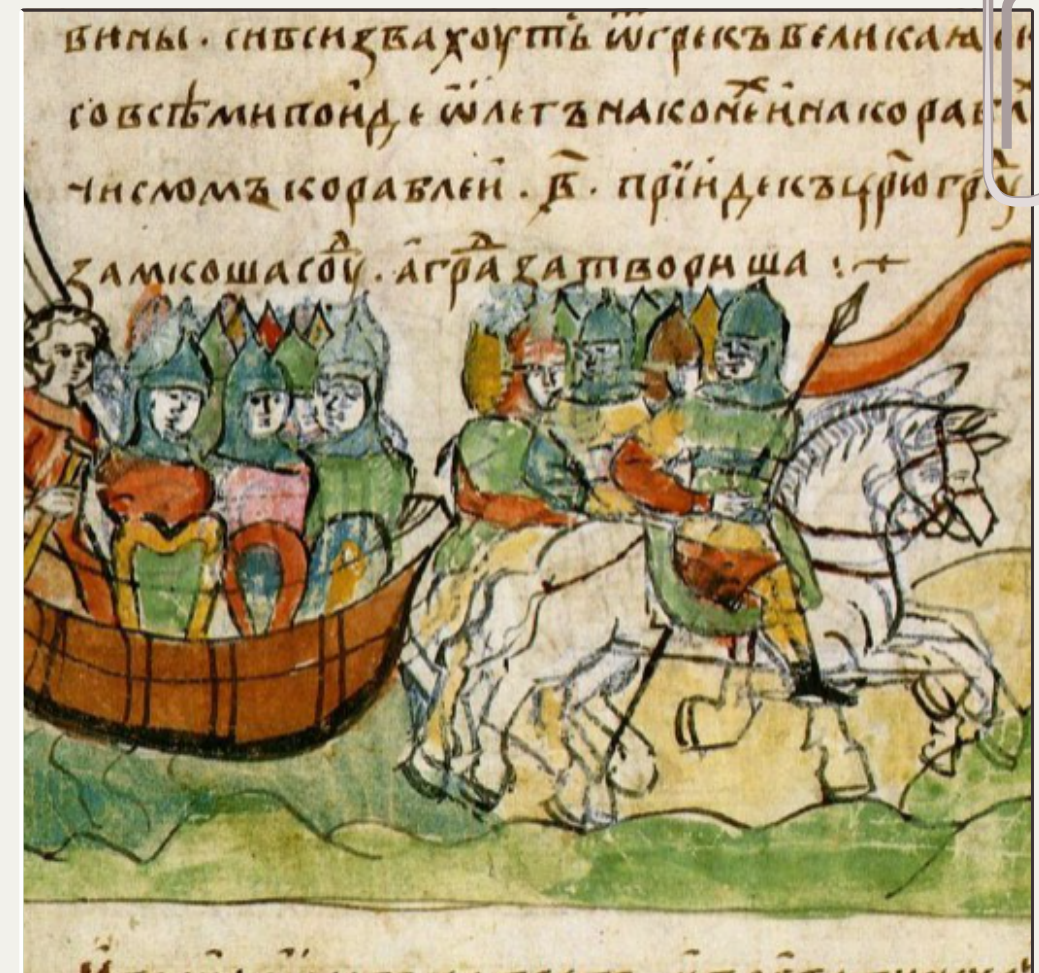 вины · сивсиѕвахоуть ѿгрекъвеликаꙗ
совсѣмипоидеѡлегънаконехинакорабл
числомъкораблеи · в҃ · прїидекъцр҃югра
ꙁамкошасоуд · аградꙁатвориша :·